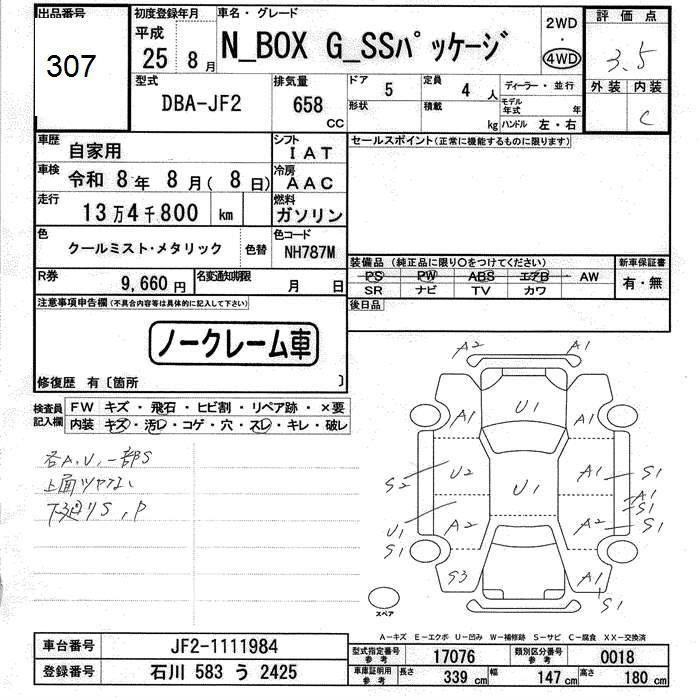 出品番号
307
初度登録年月
平成
25 8月
車名・グレード
N_BOX G_SSパッケージ
2WD
・
4WD
評価点
3.5
外装 内装
C
型式
DBA-JF2
排気量
658
CC
ドア 5
形状
定員 4 人
積載 kg
ディーラー・並行
モデル年式 年
ハンドル 左・右
車歴
自家用
シフト
IAT
セールスポイント(正常に機能するものに限ります)
車検
令和 8年 8月(8日)
冷房
AAC
走行
13万4千800 km
燃料
ガソリン
色
クールミスト・メタリック
色替
色コード
NH787M
装備品 (純正品に限り○をつけてください)
PS PW ABS エアB AW
SR ナビ TV カワ
新車保証書
有・無
R券
9,660円
名変通知期限
月 日
後日品
注意事項申告欄(不具合内容等は具体的に記入して下さい)
ノークレーム車
修復歴 有〔箇所 〕
検査員
記入欄
FW キズ・飛石・ヒビ割・リペア跡・×要
内装 キズ・汚レ・コゲ・穴・スレ・キレ・破レ
各A,U,一部S
上面ツヤない
下廻りS,P
A2 A1
A1 U1 A1
S2 U2 A1 S1
U1 U1 A1
S1
S1 A2 A2 S1
S3 A1
S1
スペア
A−キズ E−エクボ U−凹み W−補修跡 S−サビ C−腐食 XX−交換済
車台番号
JF2-1111984
登録番号
石川 583 う 2425
型式指定番号
参考
17076
類別区分番号
参考
0018
車庫証明用
参考
長さ 339 cm
幅 147 cm
高さ 180 cm